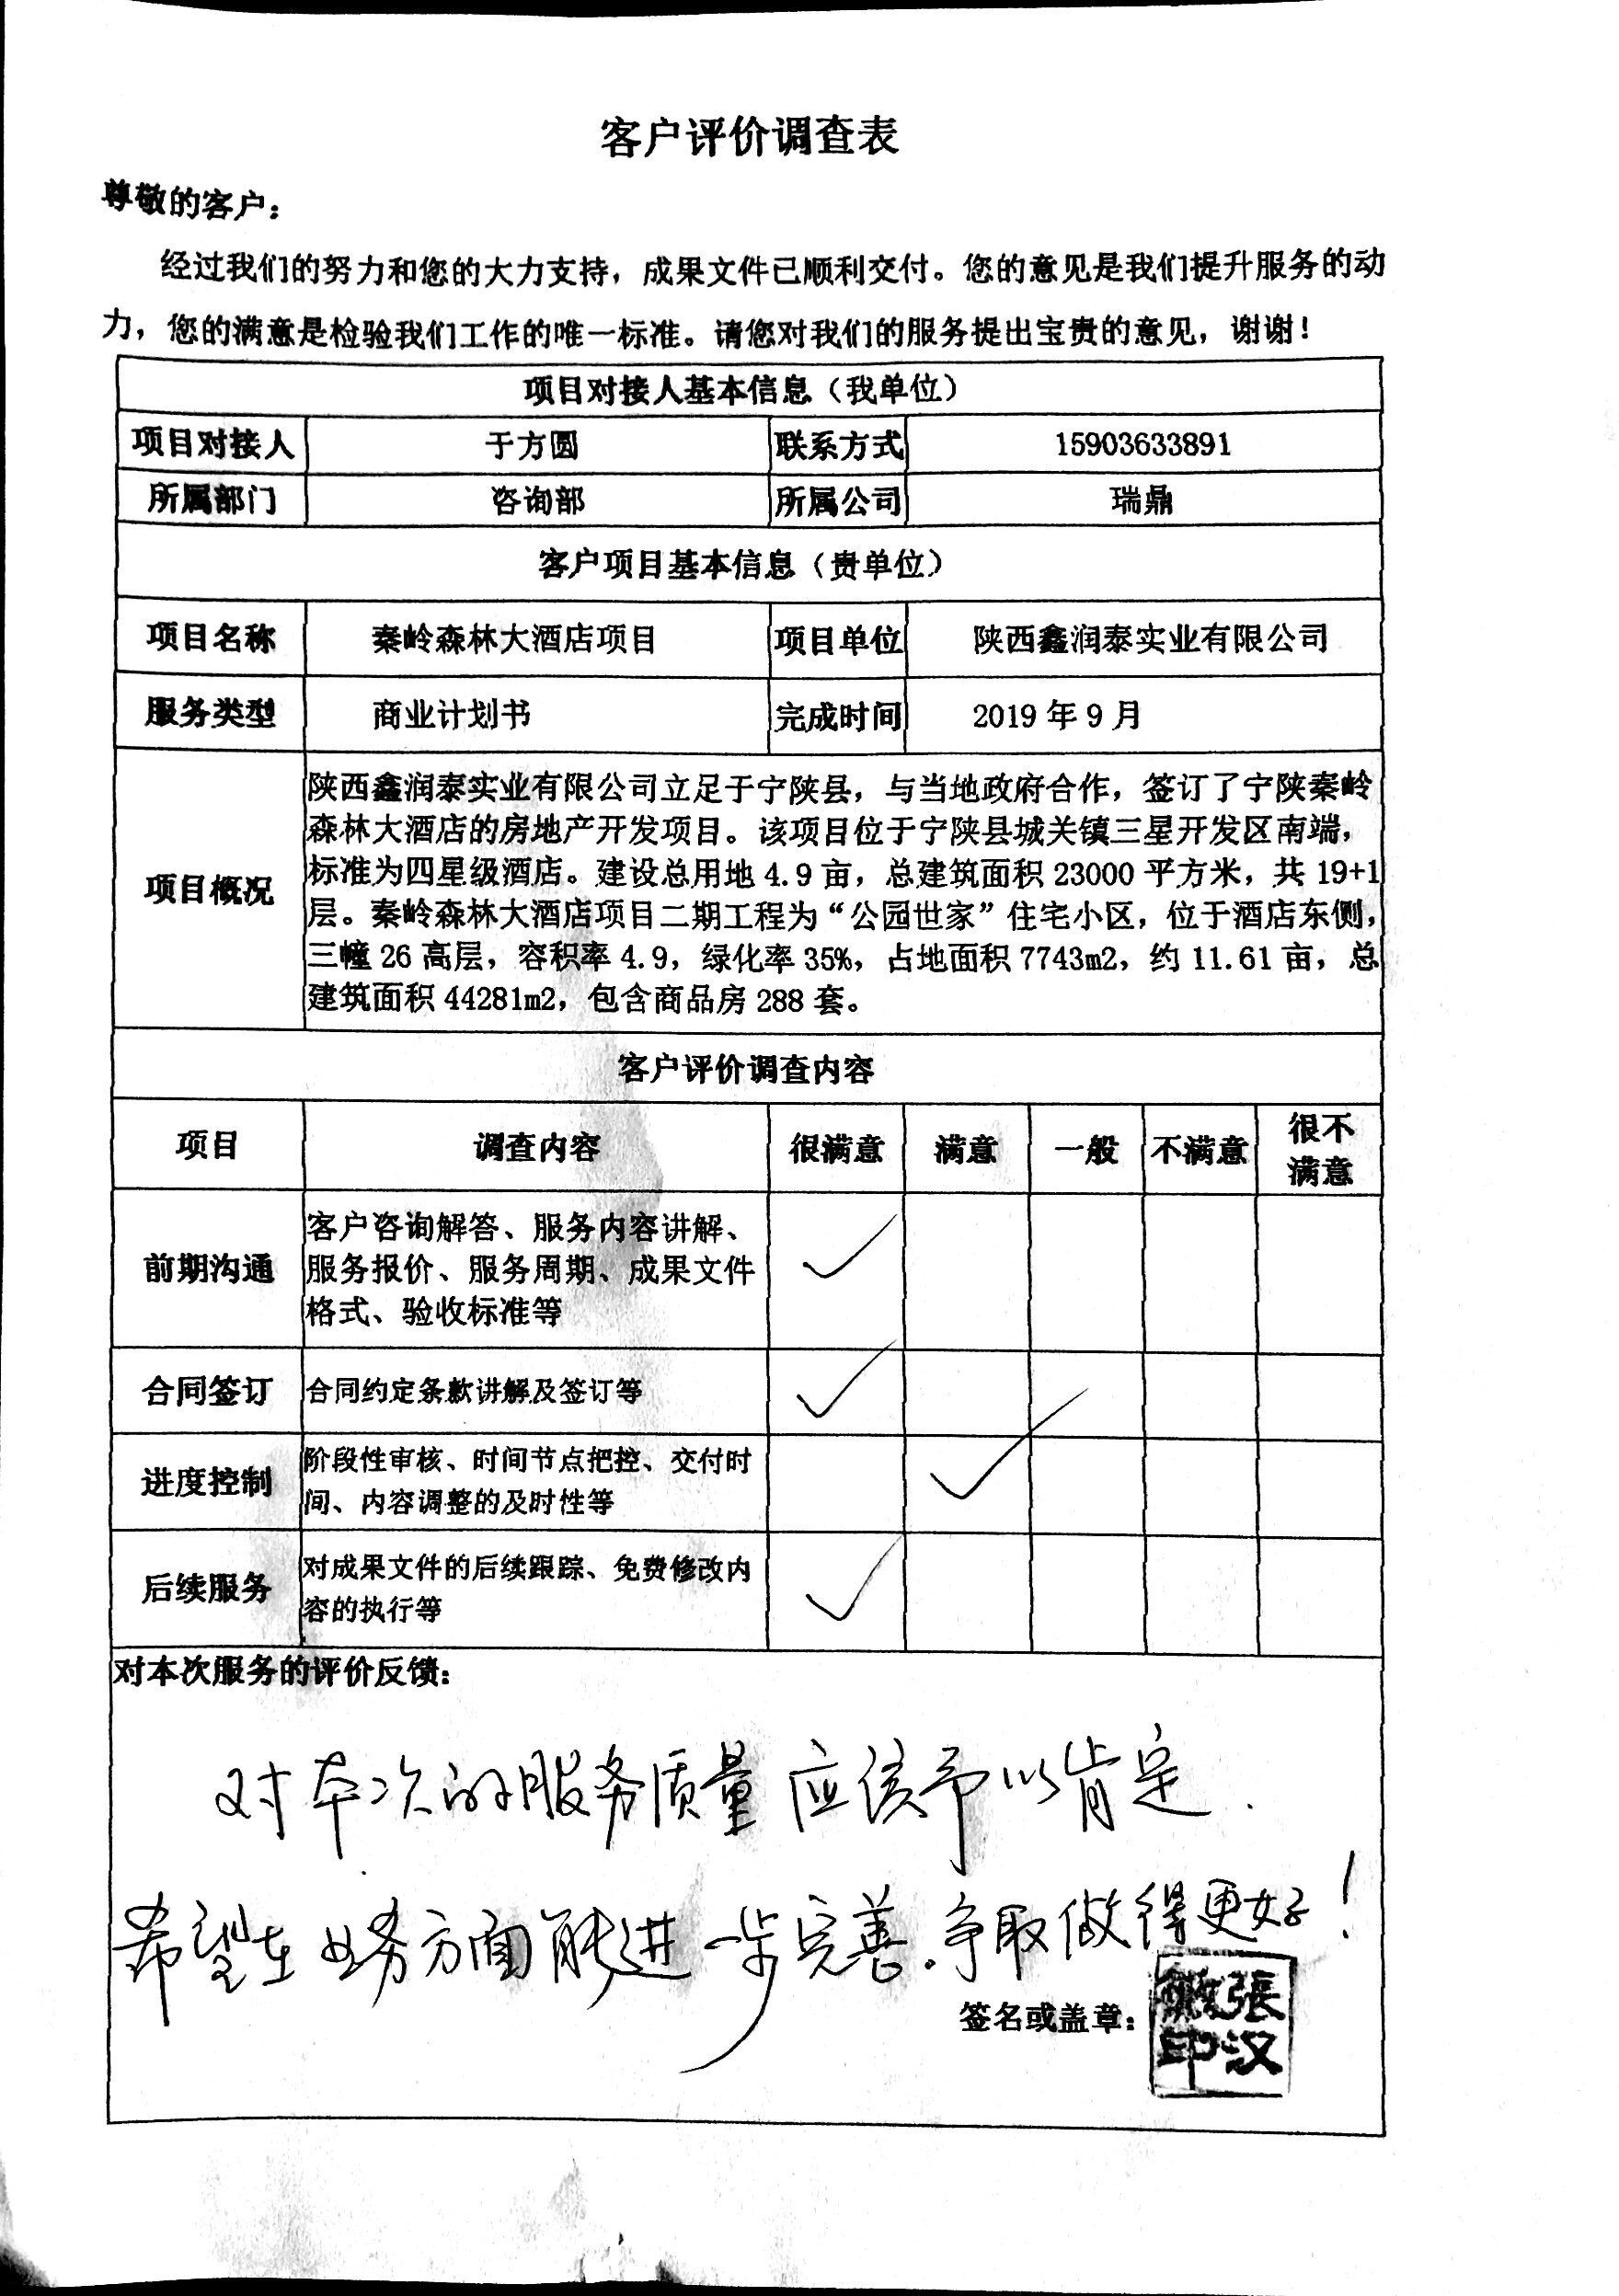 客户评价调查表
尊敬的客户：
经过我们的努力和您的大力支持，成果文件已顺利交付。您的意见是我们提升服务的动
力，您的满意是检验我们工作的唯一标准。请您对我们的服务提出宝贵的意见，谢谢！
项目对接人基本信息（我单位）
项目对接人 于方圆 联系方式 15903633891
所属部门 咨询部 所属公司 瑞鼎
客户项目基本信息（贵单位）
项目名称 秦岭森林大酒店项目 项目单位 陕西鑫润泰实业有限公司
服务类型 商业计划书 完成时间 2019 年 9 月
项目概况
陕西鑫润泰实业有限公司立足于宁陕县，与当地政府合作，签订了宁陕秦岭
森林大酒店的房地产开发项目。该项目位于宁陕县城关镇三星开发区南端，
标准为四星级酒店。建设总用地 4.9 亩，总建筑面积 23000 平方米，共 19+1
层。秦岭森林大酒店项目二期工程为“公园世家”住宅小区，位于酒店东侧，
三幢 26 高层，容积率 4.9，绿化率 35%，占地面积 7743m2，约 11.61 亩，总
建筑面积 44281m2，包含商品房 288 套。
客户评价调查内容
项目 调查内容 很满意 满意 一般 不满意 很不
满意
前期沟通
客户咨询解答、服务内容讲解、
服务报价、服务周期、成果文件
格式、验收标准等
合同签订 合同约定条款讲解及签订等
进度控制
阶段性审核、时间节点把控、交付时
间、内容调整的及时性等
后续服务
对成果文件的后续跟踪、免费修改内
容的执行等
对本次服务的评价反馈：
对本次的服务质量应该予以肯定.
希望在业务方面能进一步完善.争取做得更好！
签名或盖章：
張汉
印